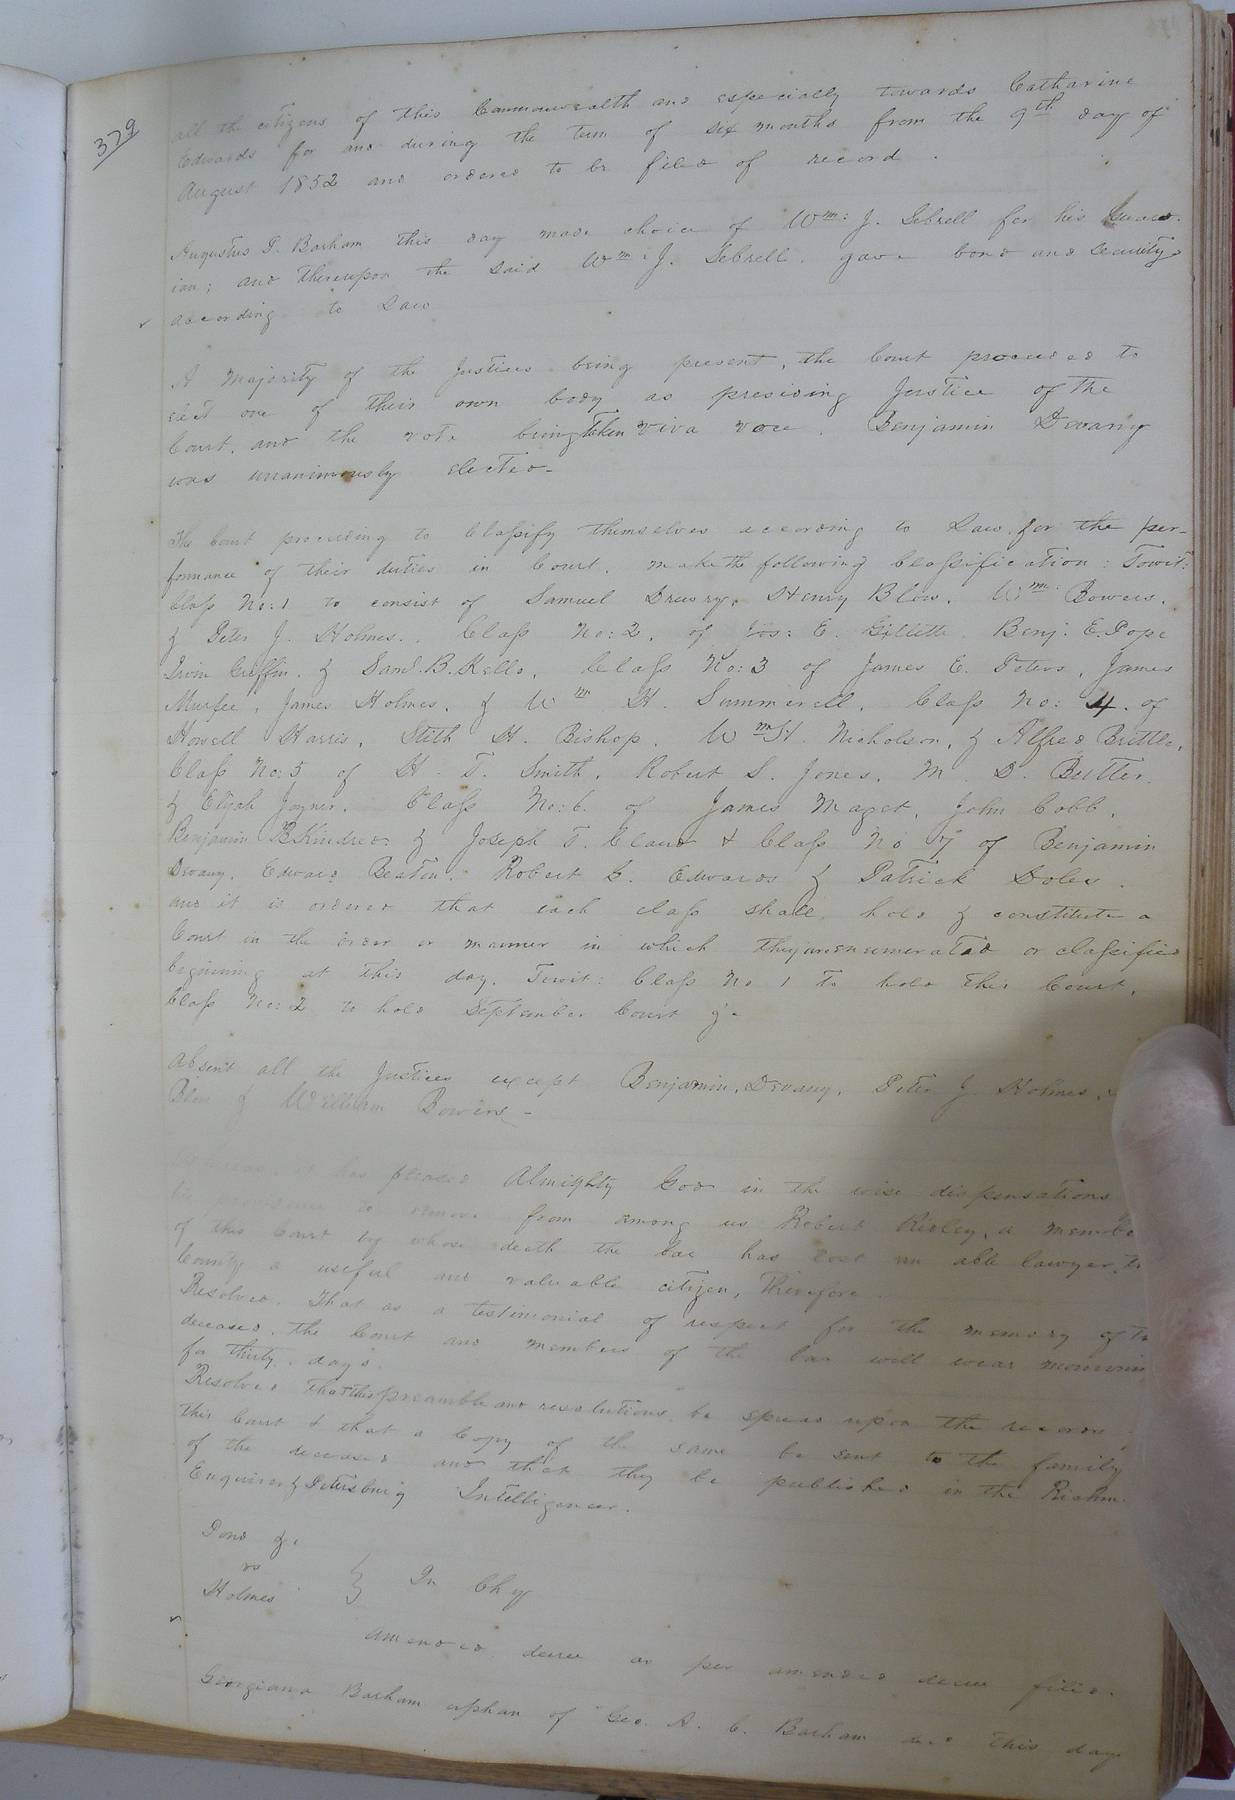 379
all the citizens of this Commonwealth and especially towards Catharine
Edwards for and during the term of six months from the 9th day of
August 1852 and ordered to be filed of record.
Augustus D. Barham this day made choice of Wm: J. Sebrell for his Guard-
ian; and thereupon the said Wm: J. Sebrell gave bond and security
according to Law
A Majority of the Justices being present, the Court proceeded to
elect one of their own body as presiding Justice of the
Court, and the vote being taken viva voce, Benjamin Devany
was unanimously elected-
The Court proceeding to Classify themselves according to Law, for the per-
formance of their duties in Court, make the following Classification: Towit:
Class No: 1 to consist of Samuel Drewry, Henry Blow, Wm Bowers,
& Peter J. Holmes. Class No: 2, of Jos: E. Gillette, Benj: E. Pope
Irvin Griffin, & Saml. B. Kello, Class No: 3 of James E. Peters, James
Murfee, James Holmes, & Wm H. Summerell, Class No: 4, of
Howell Harris, Stith H. Bishop, Wm H. Nicholson, & Alfred Brittle,
Class No: 5 of H. T. Smith, Robert S. Jones, M. D. Butler,
& Elijah Joyner. Class No: 6. of James Maget, John Cobb,
Benjamin B. Kindred & Joseph T. Claud & Class No 7 of Benjamin
Devany, Edward Beaton, Robert Edwards & Patrick Doles.
and it is ordered that each class shall hold & constitute a
Court in the order or manner in which they are enumerated or classified
begining at this day, Towit: Class No 1 to hold this Court,
Class No: 2 to hold September Court &c
Absent all the Justices except Benjamin Devany, Peter J Holmes,
Blow & William Bowers-
Whereas, it has pleased Almighty God in the wise dispensations
his providence to remove from among us Robert Ridley, a member
of this Court by whose death the bar has lost an able lawyer, the
County a useful and valuable citizen, Therefore
Resolved, That as a testimonial of respect for the memory of the
deceased, the Court and members of the bar will wear mourning
for thirty days.
Resolved that this preamble and resolutions be spread upon the records
this Court & that a Copy of the same be sent to the family
of the deceased and that they be published in the Richm.
Enquirer, & Petersburg Intelligencer.
Pond &c
vs
Holmes } In Chy
amended decree as per amended decree filed.
Georgiana Barham orphan of Geo. A. C. Barham decd this day